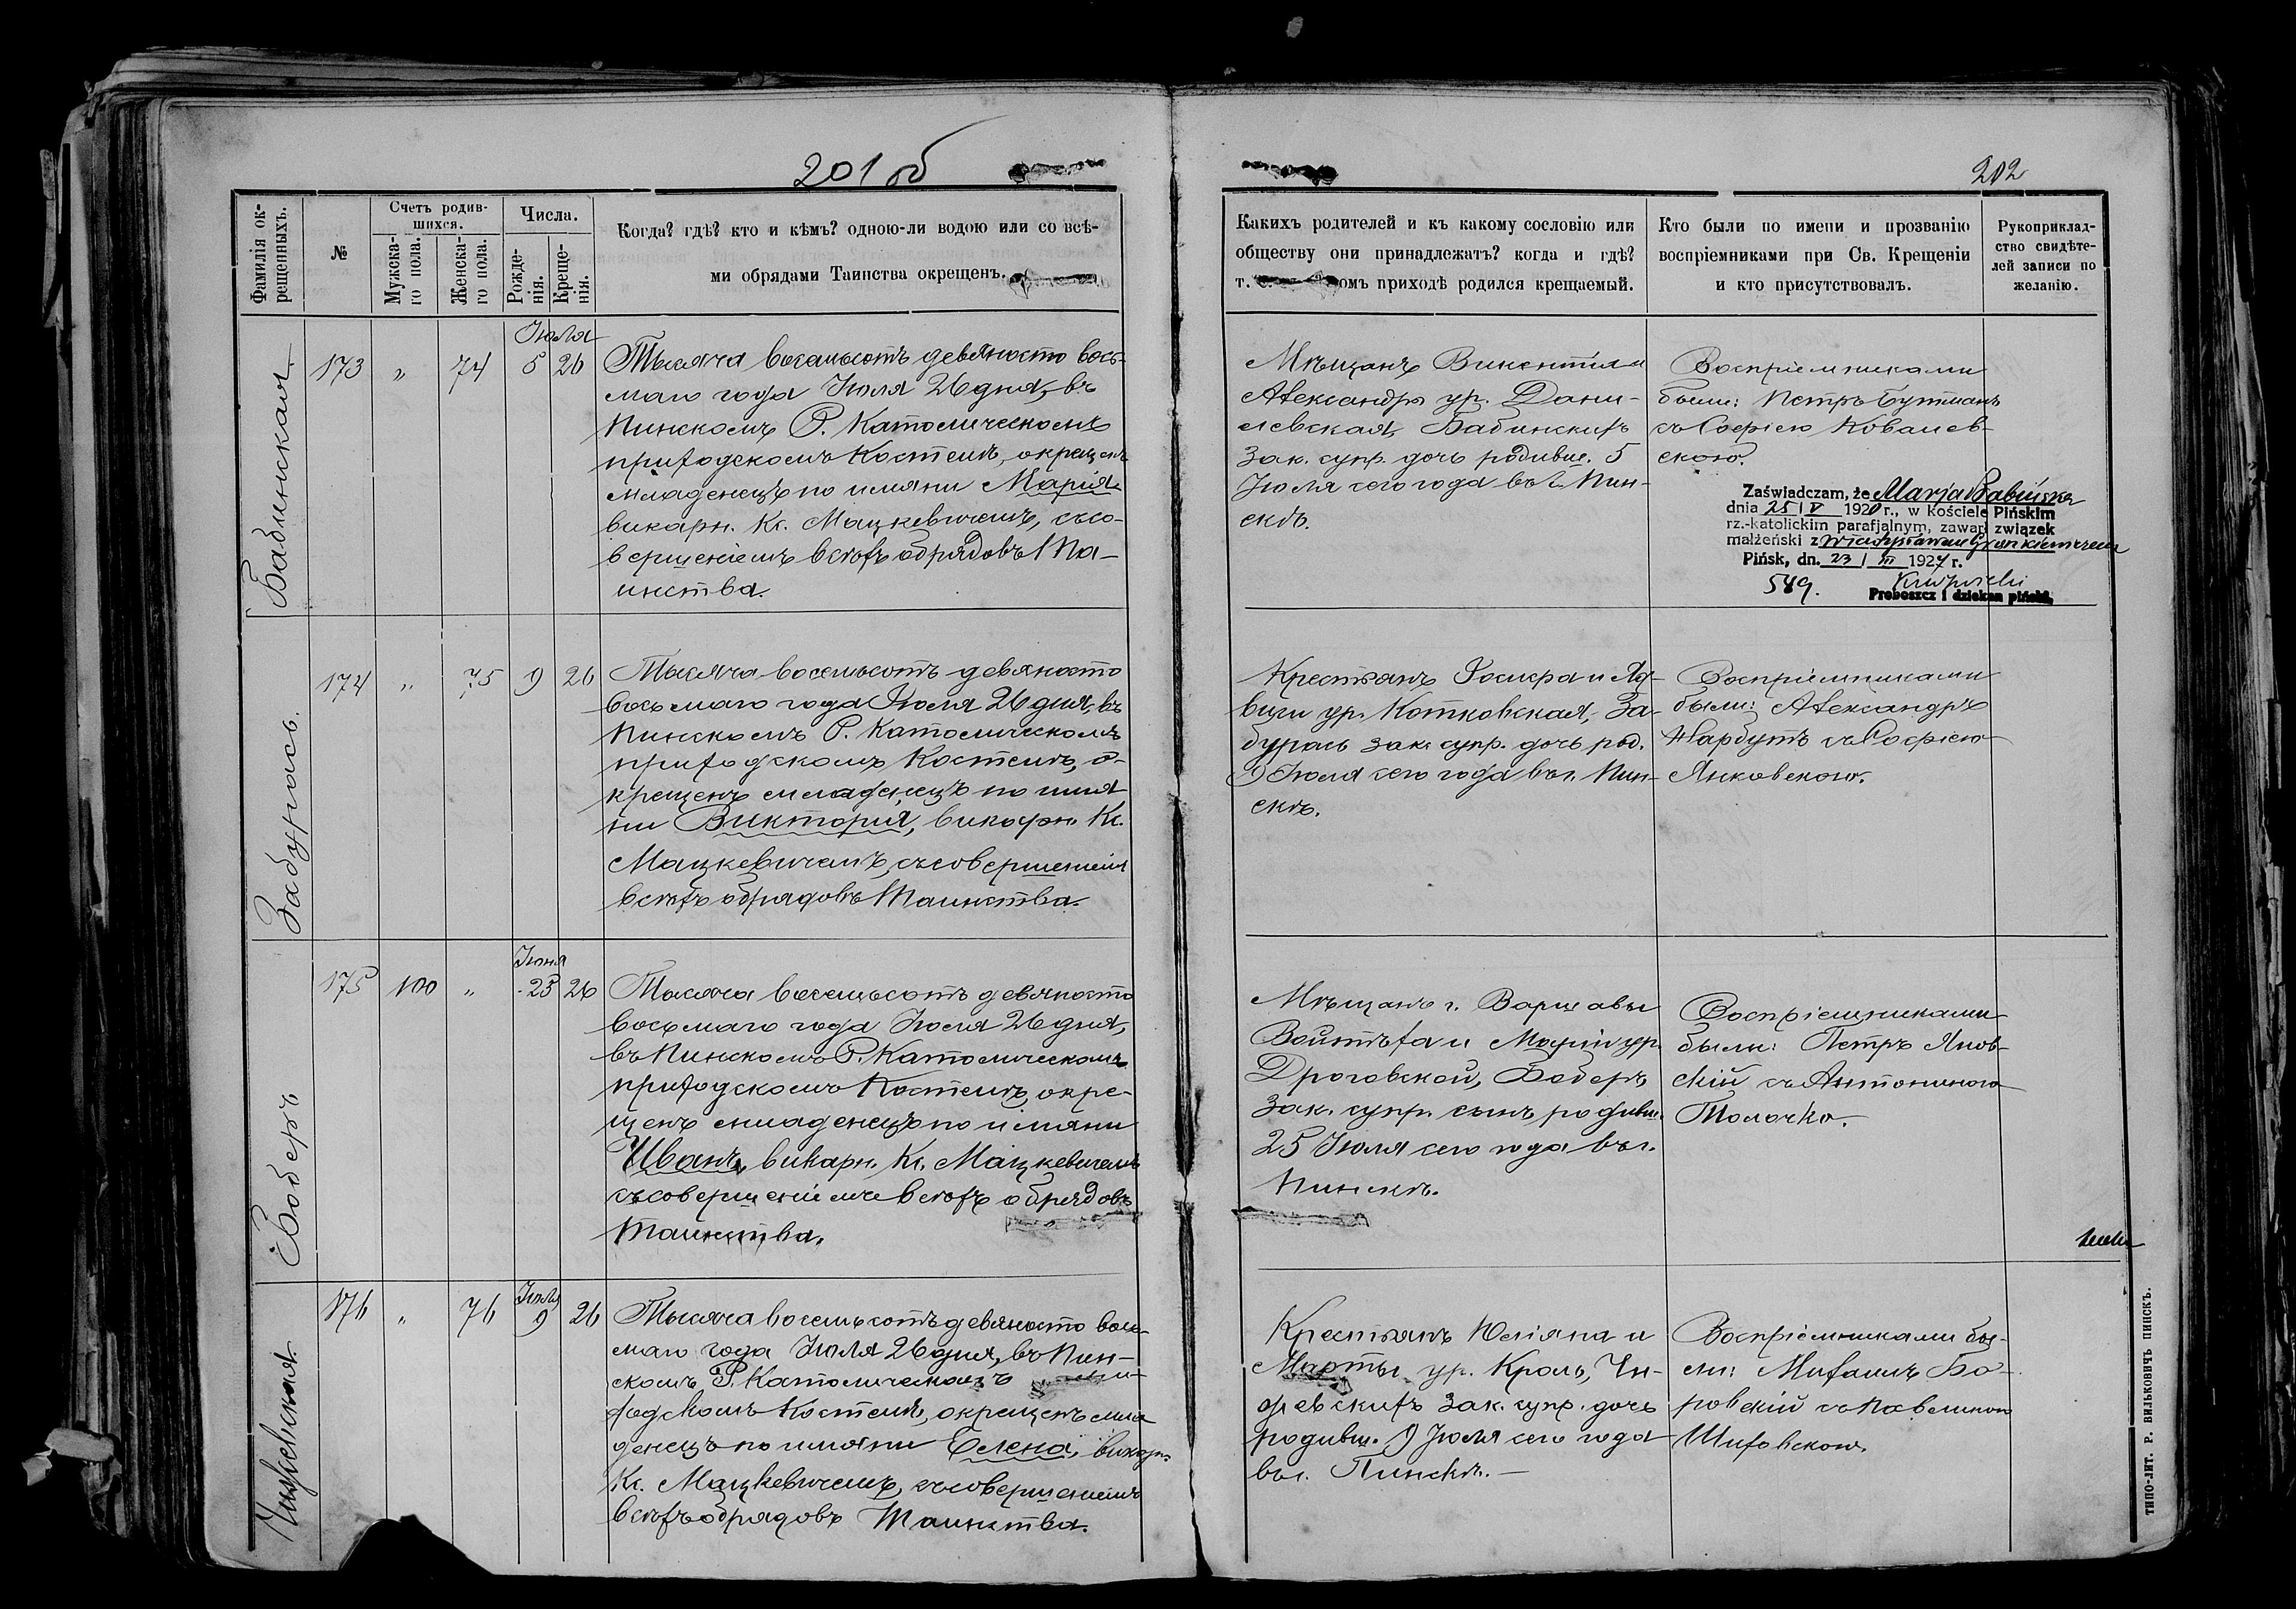 201 об
202
Фамилія ок-
рещенныхъ.
№
Счетъ родив-
шихся.
Мужска-
го пола.
Женска-
го пола.
Числа.
Рожде-
нія.
Креще-
нія.
Когда? гдѣ? кто и кѣмъ? одною-ли водою или со всѣ-
ми обрядами Таинства окрещенъ.
Какихъ родителей и къ какому сословію или
обществу они принадлежатъ? когда и гдѣ?
т. е. омъ приходѣ родился крещаемый.
Кто были по имени и прозванію
воспріемниками при Св. Крещеніи
и кто присутствовалъ.
Рукоприклад-
ство свидѣте-
лей записи по
желанію.
Бабинская
173 " 74
Іюля
5 26
Тысяча восемьсотъ девяносто вось-
маго года Іюля 26 дня, въ
Пинскомъ Р. Католическомъ
приходскомъ Костелѣ, окрещенъ
младенецъ по имяни Марія
викарн. Кс. Мацкевичемъ, съ со-
вершеніемъ всѣхъ обрядовъ Та-
инства.
Мѣщанъ Викентія и
Александры ур. Дани-
левская, Бабинскихъ
зак. супр. дочь родивш. 5
Іюля сего года въ г. Пин-
скѣ.
Воспріемниками
были: Петръ Бутманъ
съ Софіею Ковалев-
скою.
Zaświadczam, że Marja Babińska
dnia 25 / V 1920 r., w Kościele Pińskim
rz.-katolickim parafjalnym, zawarł związek
małżeński z
Pińsk, dn. 23 / III 1927 r.
589.
Proboszcz i dziekan piński.
Забурась.
174 " 75 9 26
Тысяча восемьсотъ девяносто
восьмаго года Іюля 26 дня, въ
Пинскомъ Р. Католическомъ
приходскомъ Костелѣ, о-
крещенъ младенецъ по имя-
ни Викторія, викарн. Кс.
Мацкевичемъ, съ совершеніем
всѣхъ обрядовъ Таинства.
Крестьянъ и Яд-
виги ур. Котковская, За-
бурась зак. супр. дочь род.
9 Іюля сего года въ г. Пин-
скѣ.
Воспріемниками
были: Александръ
Нарбутъ съ Софіею
Янковскою.
Боберъ
175 100 "
Іюня
25 26
Тысяча восемьсотъ девяносто
восьмаго года Іюля 26 дня,
въ Пинскомъ Р. Католическомъ
приходскомъ Костелѣ, окре-
щенъ младенецъ по имяни
Иванъ, викарн. Кс. Мацкевичемъ
съ совершеніемъ всѣхъ обрядовъ
Таинства.
Мѣщанъ г. Варшавы
Войтѣха и Маріи ур.
Дроговской, Боберъ
зак. супр. сынъ родивш.
25 Іюля сего года въ г.
Пинскѣ.
Воспріемниками
были: Петръ Янов-
скій съ Антониною
Толочко.
176 " 76
Іюля
9 26
Тысяча восемьсотъ девяносто вось-
маго года Іюля 26 дня, въ Пин-
скомъ Р. Католическомъ при-
ходскомъ Костелѣ, окрещенъ мла
денецъ по имяни Елена, викарн.
Кс. Мацкевичемъ, съ совершеніемъ
всѣхъ обрядовъ Таинства.
Крестьянъ Юліяна и
Марты ур. Кроль,
зак. супр. дочь
родивш. 9 Іюля сего года
въ г. Пинскѣ.
Воспріемниками бы-
ли: Михаилъ Бо-
ровскій съ Павелиною
Шиховскою.
ТИПО-ЛИТ. Р. ВИЛЬКОВИЧЪ ПИНСКЪ.